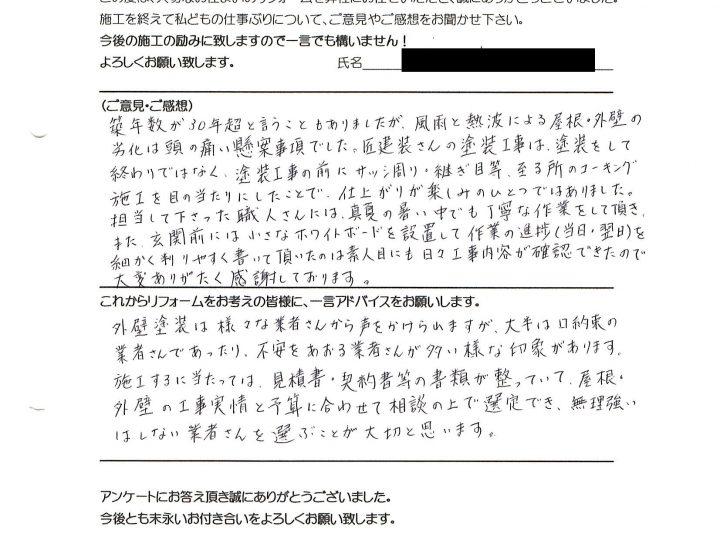 施工を終えて私どもの仕事ぶりについて、ご意見やご感想をお聞かせ下さい。
今後の施工の励みに致しますので一言でも構いません！
よろしくお願い致します。 氏名
（ご意見・ご感想）
築年数が30年超と言うこともありましたが、風雨と熱波による屋根・外壁の
劣化は頭の痛い懸案事項でした。匠建装さんの塗装工事は、塗装をして
終わりではなく、塗装工事の前にサッシ周り・継ぎ目等、至る所のコーキング
施工を目の当たりにしたことで、仕上がりが楽しみのひとつではありました。
担当して下さった職人さんには、真夏の暑い中でも丁寧な作業をして頂き、
また、玄関前には小さなホワイトボードを設置して作業の進捗(当日・翌日)を
細かく判りやすく書いて頂いたのは素人目にも日々工事内容が確認できたので
大変ありがたく感謝しております。
これからリフォームをお考えの皆様に、一言アドバイスをお願いします。
外壁塗装は様々な業者さんから声をかけられますが、大半は口約束の
業者さんであったり、不安をあおる業者さんが多い様な印象があります。
施工するに当たっては、見積書・契約書等の書類が整っていて、屋根・
外壁の工事実情と予算に合わせて相談の上で選定でき、無理強い
はしない業者さんを選ぶことが大切と思います。
アンケートにお答え頂き誠にありがとうございました。
今後とも末永いお付き合いをよろしくお願い致します。